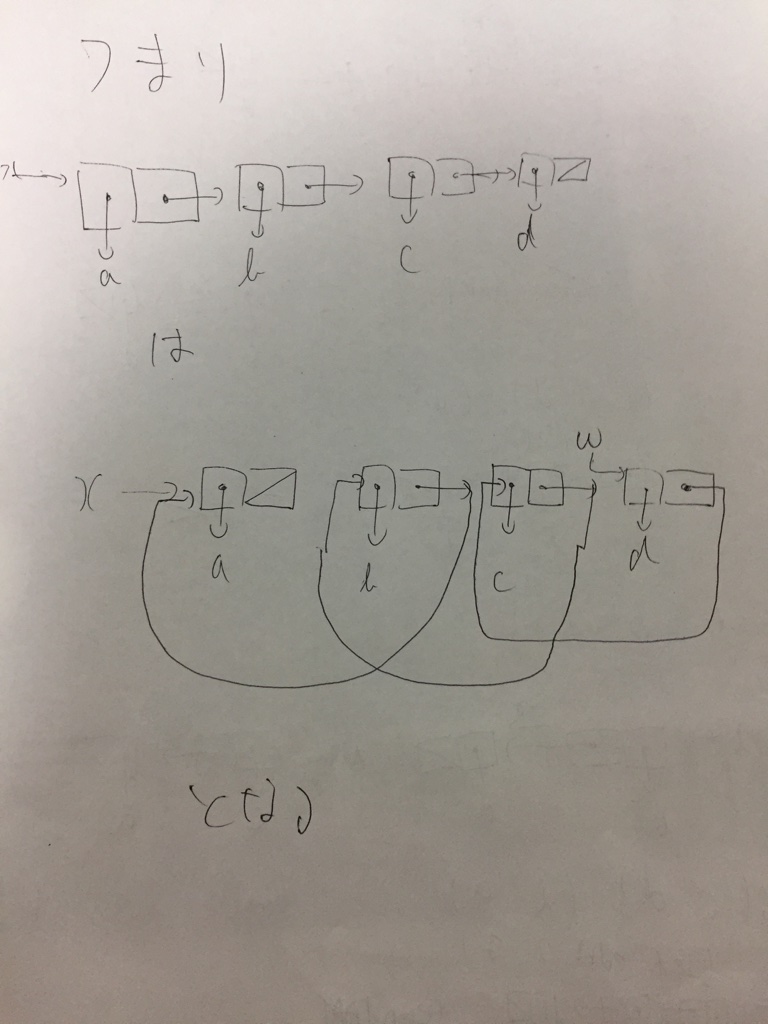 つまり
x
a b c d
は
w
x
a b c d
となる